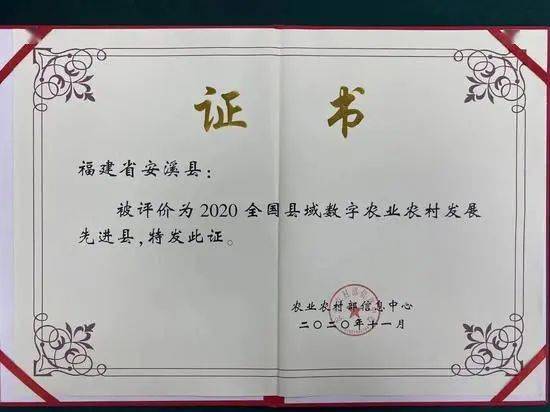 证 书
福建省安溪县：
被评价为2020全国县域数字农业农村发展
先进县，特发此证。
农业农村部信息中心
二〇二〇年十一月